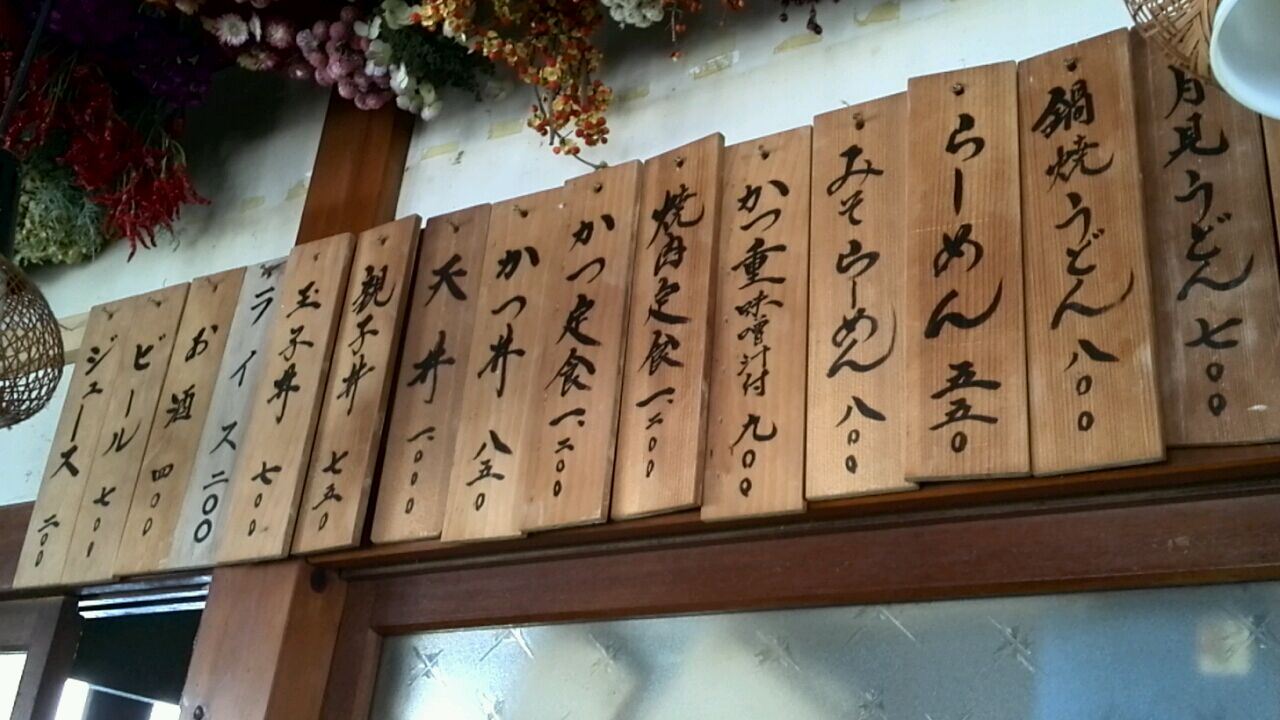 月見うどん 七〇〇
鍋焼うどん 八〇〇
らーめん 五五〇
みそらーめん 八〇〇
かつ重味噌汁付 九〇〇
焼肉定食 一、二〇〇
かつ定食 一、二〇〇
かつ丼 八五〇
天丼 一、〇〇〇
親子丼 七五〇
玉子丼 七〇〇
ライス 二〇〇
お酒 四〇〇
ビール 七〇〇
ジュース 二〇〇